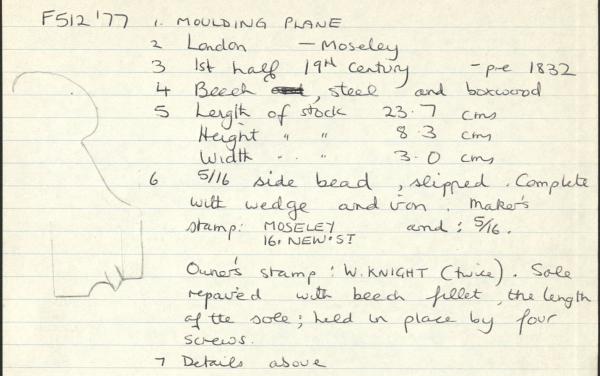 F512'77 1. MOULDING PLANE
2 London — Moseley
3 1st half 19th century - pre 1832
4 Beech, steel and boxwood
5 Length of stock 23.7 cms
Height " " 8.3 cms
Width " " 3.0 cms
6 5/16 side bead, slipped. Complete
with wedge and iron. Maker's
stamp: MOSELEY and: 5/16.
16. NEW. ST
Owner's stamp: W. KNIGHT (twice). Sole
repaired with beech fillet, the length
of the sole; held in place by four
screws.
7 Details above